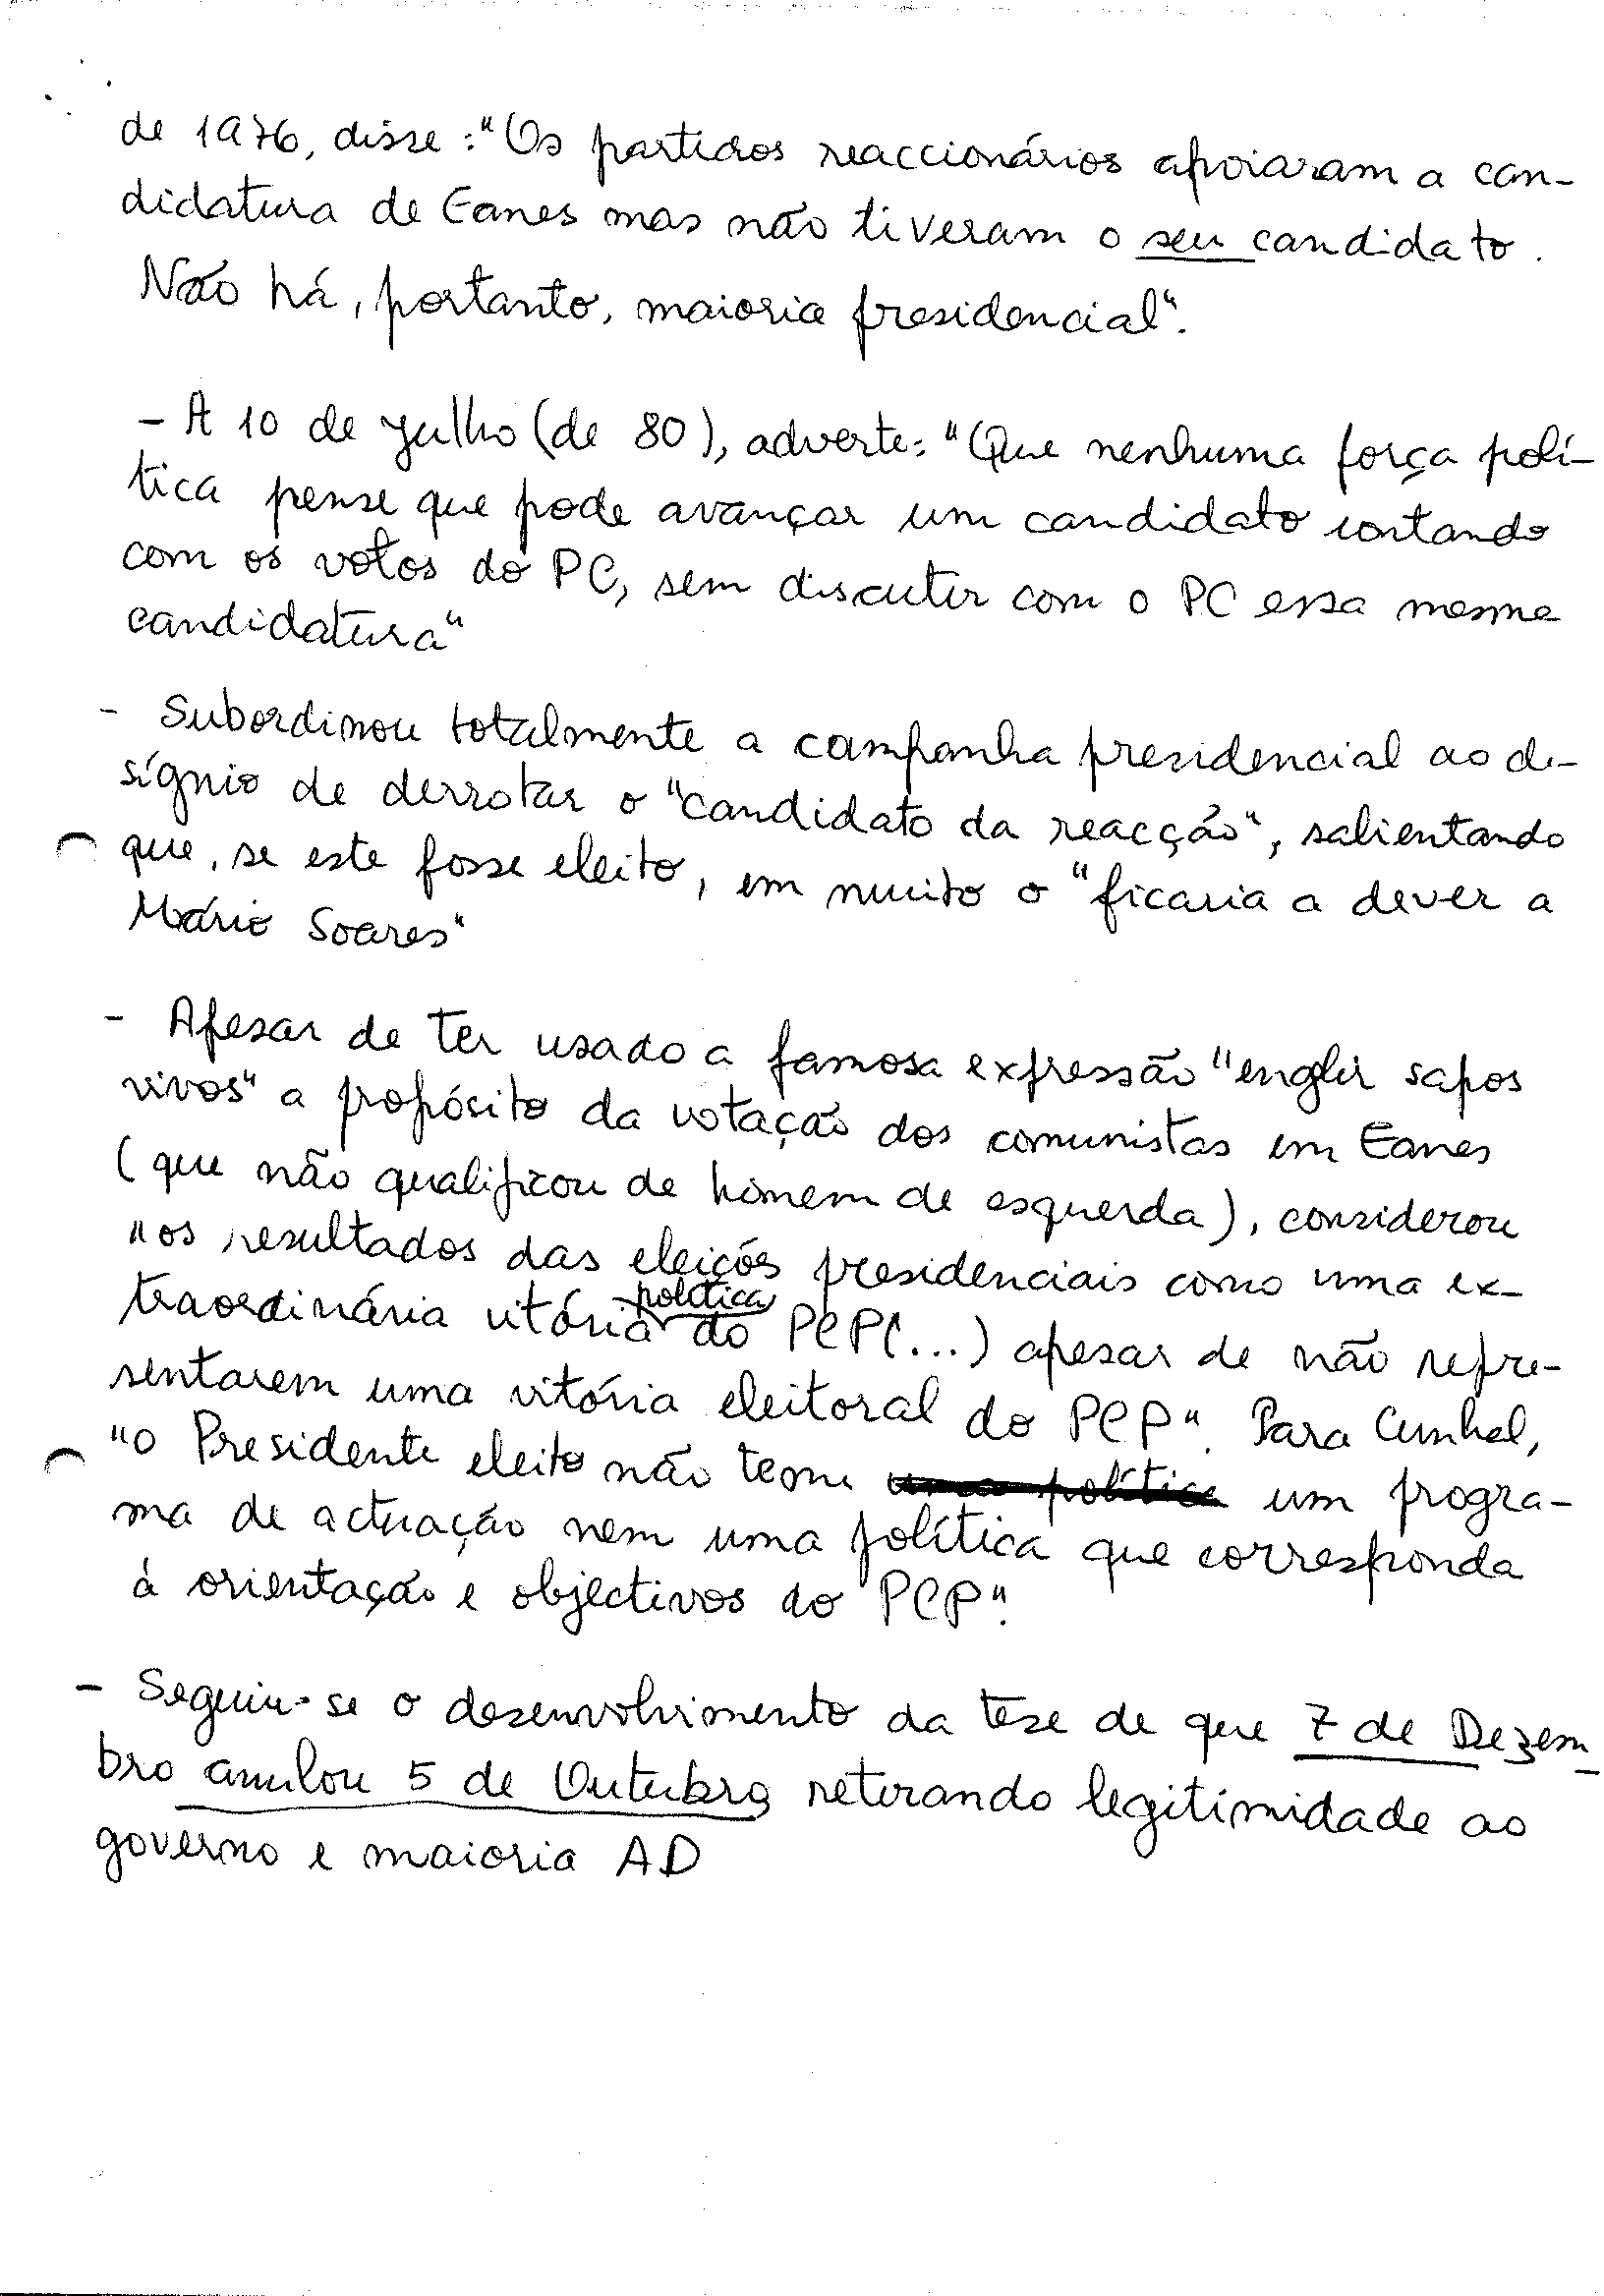 de 1976, disse: "Os partidos reaccionários apoiaram a can-
didatura de Eanes mas não tiveram o seu candidato.
Não há, portanto, maioria presidencial".
- A 10 de Julho (de 80), adverte: "Que nenhuma força polí-
tica pense que pode avançar um candidato contando
com os votos do PC, sem discutir com o PC essa mesma
candidatura"
- Subordinou totalmente a campanha presidencial ao de-
sígnio de derrotar o "candidato da reacção", salientando
que, se este fosse eleito, em muito o "ficaria a dever a
Mário Soares"
- Apesar de ter usado a famosa expressão "englir sapos
vivos" a propósito da votação dos comunistas em Eanes
(que não qualificou de homem de esquerda), considerou
"os resultados das eleições presidenciais como uma ex-
traordinária vitória política do PCP (...) apesar de não repre-
sentarem uma vitória eleitoral do PCP". Para Cunhal,
"o Presidente eleito não tem uma política um progra-
ma de actuação nem uma política que corresponda
à orientação e objectivos do PCP".
- Seguiu-se o desenvolvimento da tese de que 7 de Dezem-
bro anulou 5 de Outubro, retirando legitimidade ao
governo e maioria AD